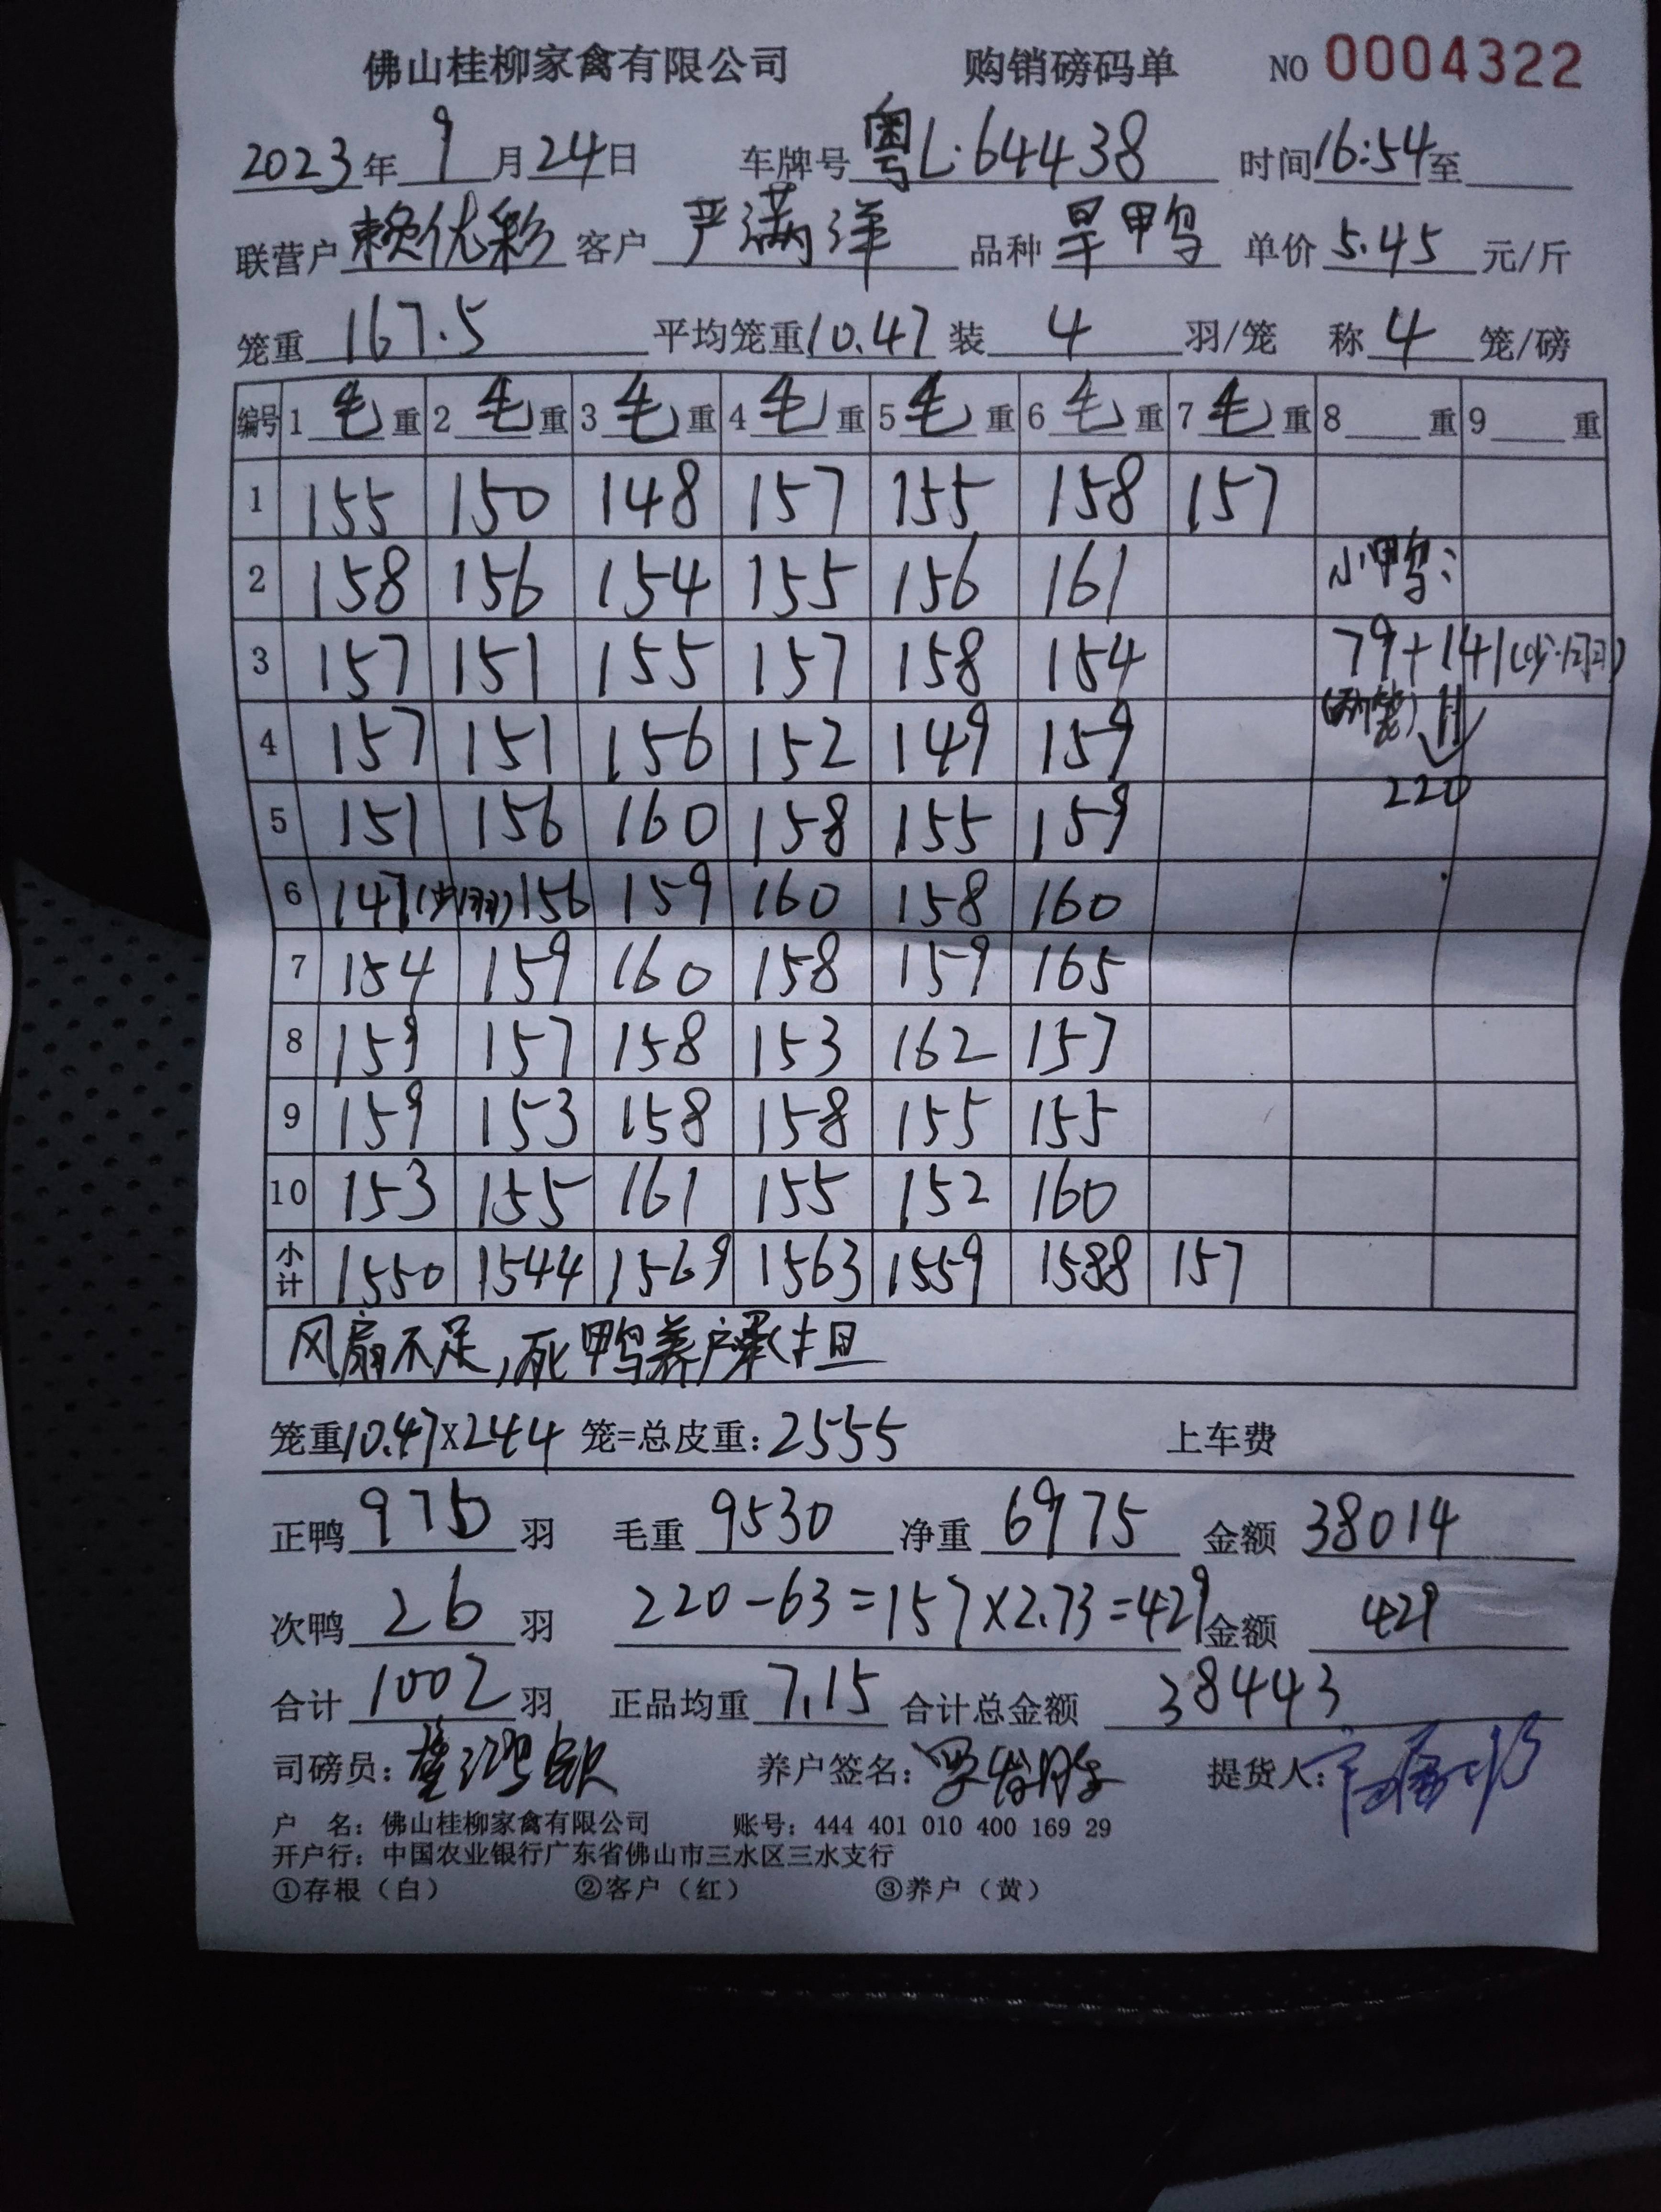 佛山桂柳家禽有限公司 购销磅码单 NO 0004322
2023年9月24日 车牌号粤L·64438 时间16:54至
联营户赖优彩 客户严满洋 品种旱鸭 单价5.45元/斤
笼重167.5 平均笼重10.47 装4羽/笼 称4笼/磅
编号 1毛重 2毛重 3毛重 4毛重 5毛重 6毛重 7毛重 8重 9重
1 155 150 148 157 155 158 157
2 158 156 154 155 156 161 小鸭:
3 157 151 155 157 158 154 79+141(少1羽)
4 157 151 156 152 149 159 (两笼)
5 151 156 160 158 155 159 220
6 147(少1羽) 156 159 160 158 160
7 154 159 160 158 159 165
8 159 157 158 153 162 157
9 159 153 158 158 155 155
10 153 155 161 155 152 160
小计 1550 1544 1569 1563 1559 1588 157
风扇不足,死鸭养户承担
笼重10.47x244 笼=总皮重:2555 上车费
正鸭975羽 毛重9530 净重6975 金额38014
次鸭26羽 220-63=157x2.73=429 金额429
合计1002羽 正品均重7.15 合计总金额38443
司磅员: 养户签名: 提货人:
户 名:佛山桂柳家禽有限公司 账号:444 401 010 400 169 29
开户行:中国农业银行广东省佛山市三水区三水支行
①存根(白) ②客户(红) ③养户(黄)